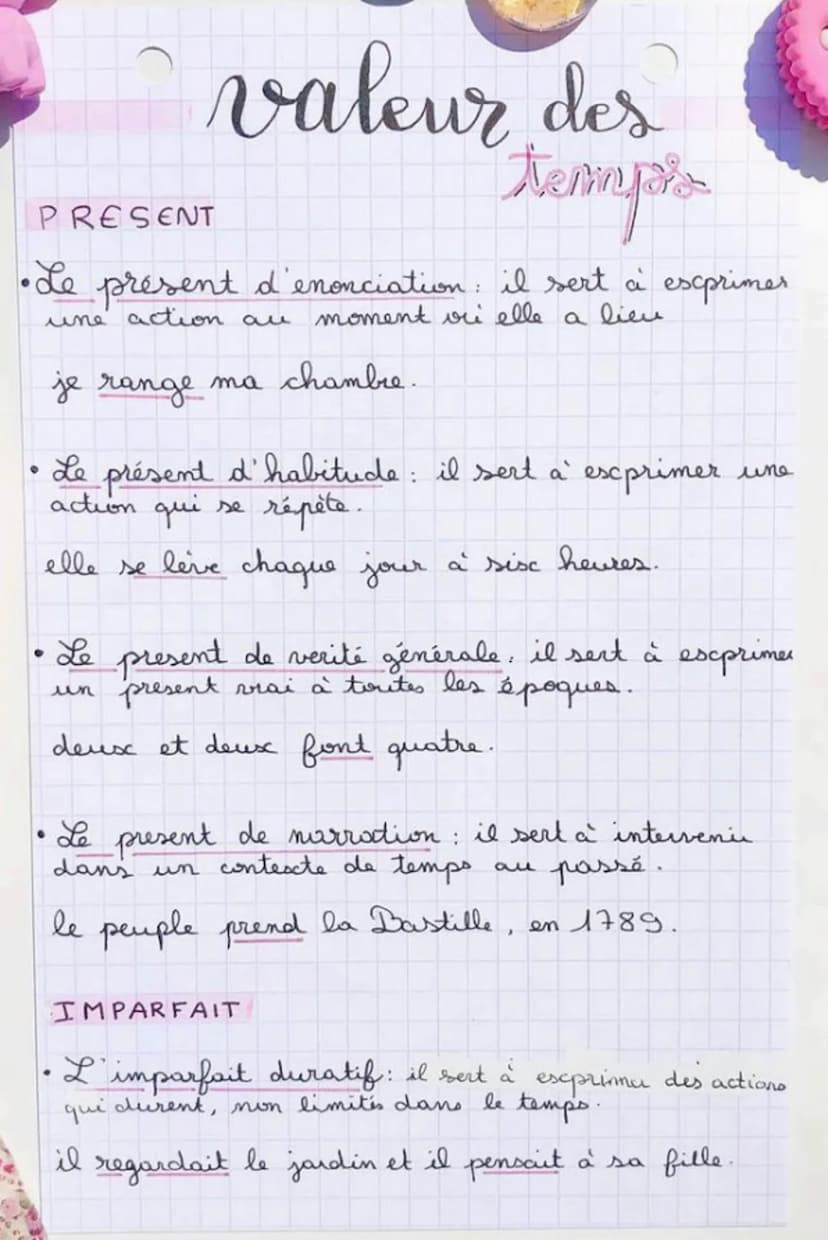 valeur des
temps
PRESENT
• Le présent d'enonciation : il sert à exprimer
une action au moment où elle a lieu
je range ma chambre.
• Le présent d'habitude : il sert à exprimer une
action qui se répète.
elle se lève chaque jour à six heures.
• Le present de verité générale : il sert à exprimer
un present vrai à toutes les époques.
deux et deux font quatre.
• Le present de narration : il sert à intervenir
dans un contexte de temps au passé.
le peuple prend la Bastille, en 1789.
IMPARFAIT
• L'imparfait duratif : il sert à exprimer des actions
qui durent, non limités dans le temps.
il regardait le jardin et il pensait à sa fille.